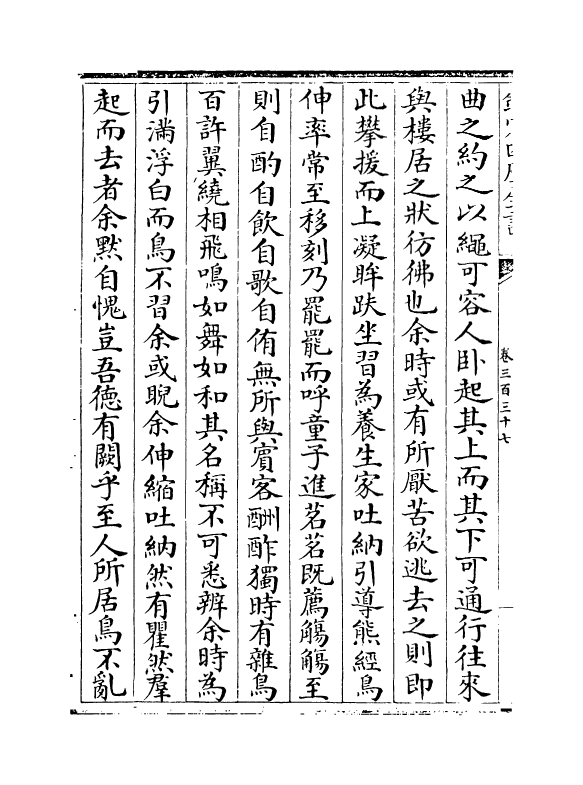 卷三百三十七
曲之約之以繩可容人卧起其上而其下可通行往來
與樓居之狀彷彿也余時或有所厭苦欲逃去之則即
此攀援而上凝眸趺坐習為養生家吐納引導熊經鳥
伸率常至移刻乃罷罷而呼童子進茗茗既薦觴觴至
則自酌自飲自歌自侑無所與賓客酬酢獨時有雜鳥
百許翼繞相飛鳴如舞如和其名稱不可悉辨余時為
引滿浮白而鳥不習余或睨余伸縮吐納然有瞿然羣
起而去者余黙自愧豈吾徳有闕乎至人所居鳥不亂